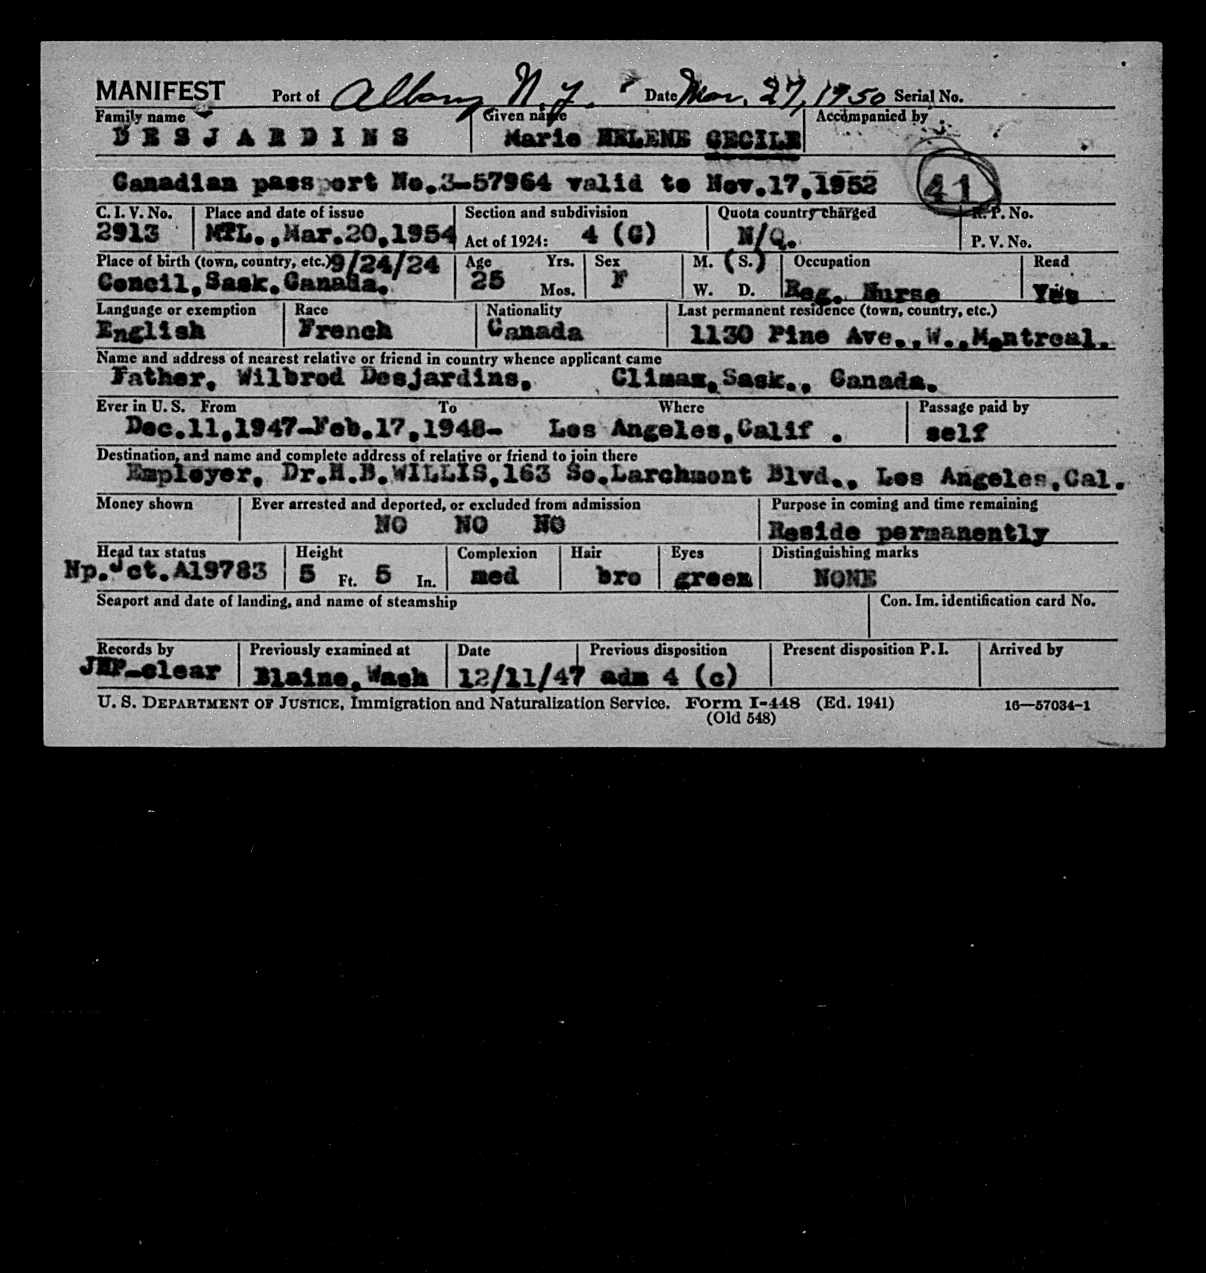 MANIFEST Port of Albany, N.Y. Date Mar. 27, 1950 Serial No.
Family name Given name Accompanied by
DESJARDINS Marie HELENE CECILE
Canadian passport No.3-57964 valid to Nov.17,1952 41
C. I. V. No. Place and date of issue Section and subdivision Quota country charged R. P. No.
2913 MTL.,Mar.20,1954 Act of 1924: 4 (C) N/Q. P. V. No.
Place of birth (town, country, etc.) 9/24/24 Age Yrs. Sex M. (S.) Occupation Read
Concil,Sask.Canada. 25 Mos. F W. D. Reg. Nurse Yes
Language or exemption Race Nationality Last permanent residence (town, country, etc.)
English French Canada 1130 Pine Ave.,W.,Montreal.
Name and address of nearest relative or friend in country whence applicant came
Father, Wilbrod Desjardins, Climax,Sask., Canada.
Ever in U. S. From To Where Passage paid by
Dec.11,1947-Feb.17,1948- Los Angeles,Calif . self
Destination, and name and complete address of relative or friend to join there
Employer, Dr.H.B.WILLIS,163 So.Larchmont Blvd., Los Angeles,Cal.
Money shown Ever arrested and deported, or excluded from admission Purpose in coming and time remaining
NO NO NO Reside permanently
Head tax status Height Complexion Hair Eyes Distinguishing marks
Np.Jct.A19783 5 Ft. 5 In. med bro green NONE
Seaport and date of landing, and name of steamship Con. Im. identification card No.
Records by Previously examined at Date Previous disposition Present disposition P. I. Arrived by
JEP-clear Blaine,Wash 12/11/47 adm 4 (c)
U. S. DEPARTMENT OF JUSTICE, Immigration and Naturalization Service. Form I-448 (Ed. 1941) 16—57034-1
(Old 548)